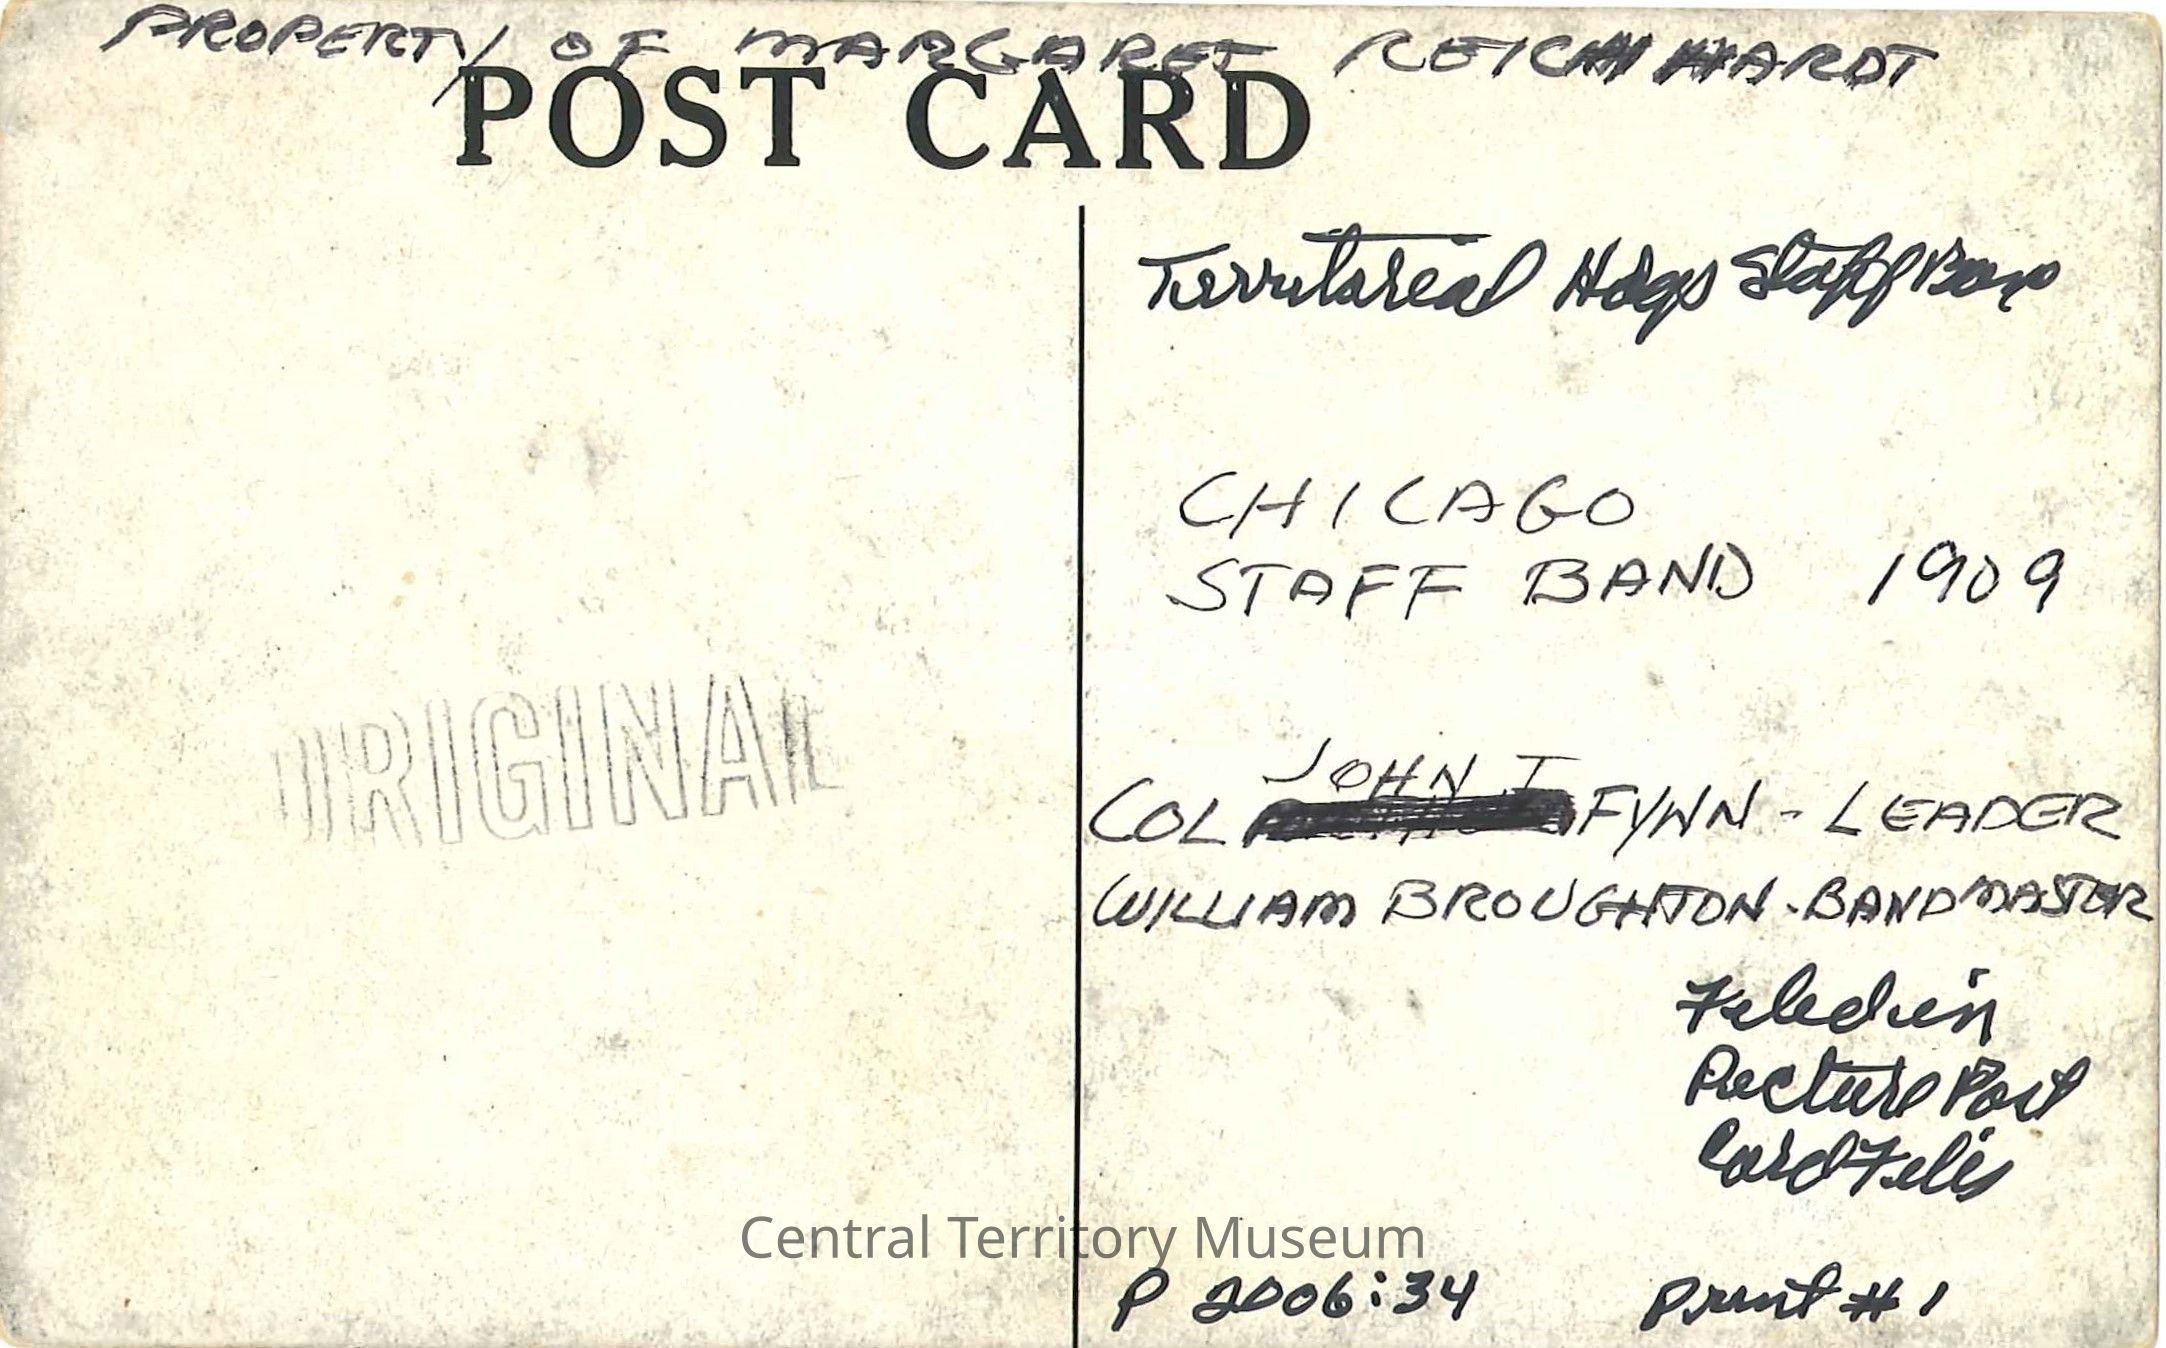 PROPERTY OF MARGARET REICHHARDT
POST CARD
Territorial Hdqs Staff Band
CHICAGO
STAFF BAND 1909
ORIGINAL
JOHN T
COL FYNN - LEADER
WILLIAM BROUGHTON - BANDMASTER
Filed in
Picture Post
Card Files
Central Territory Museum
P 2006:34 Print #1